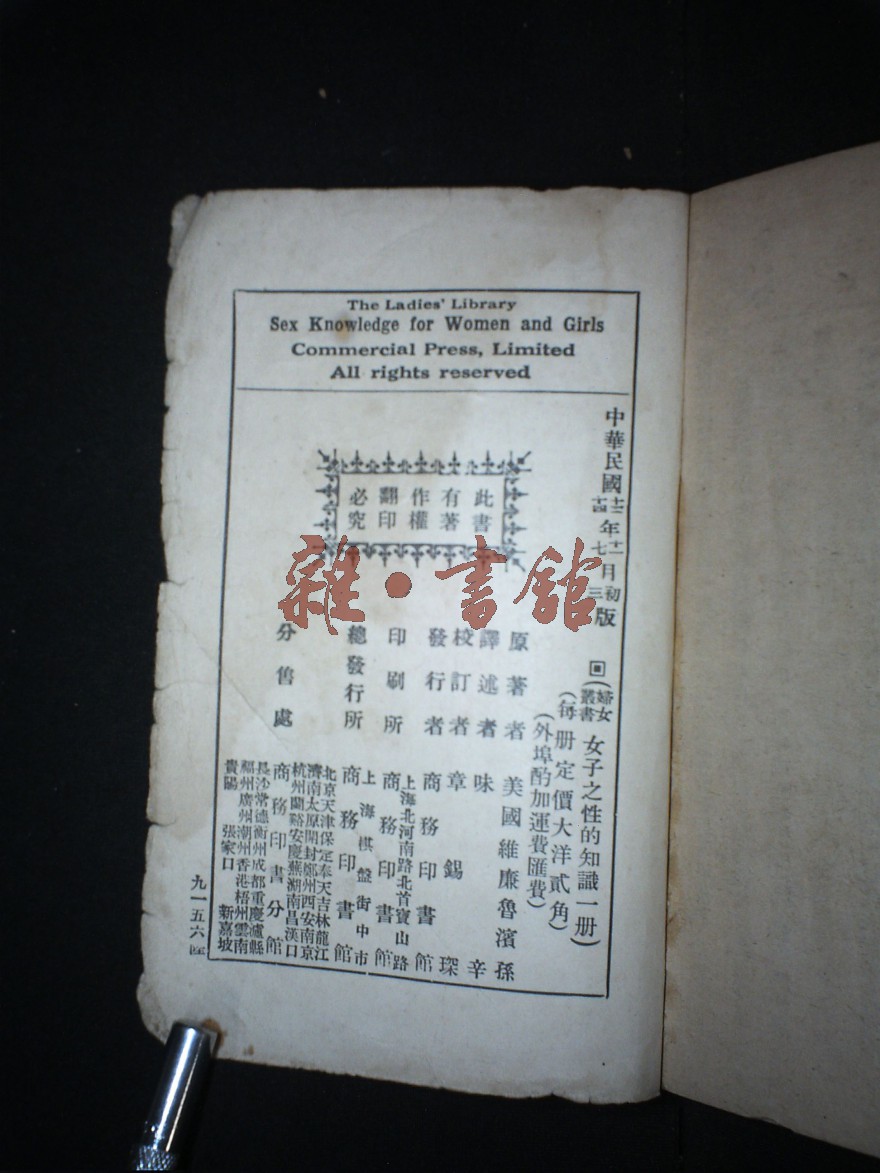 The Ladies' Library
Sex Knowledge for Women and Girls
Commercial Press, Limited
All rights reserved
中華民國十二年十一月初版
十四 七 三
此書
有著
作權
翻印
必究
雜·書館
回(婦女叢書女子之性的知識一册)
(每册定價大洋貳角)
(外埠酌加運費匯費)
原著者 美國維廉魯濱孫
譯述者 味辛
校訂者 章錫琛
發行者 商務印書館
上海北河南路北首寶山路
印刷所 商務印書館
上海棋盤街中市
總發行所 商務印書館
北京天津保定奉天吉林龍江
濟南太原開封鄭州西安南京
杭州蘭谿安慶蕪湖南昌漢口
分售處 商務印書分館
長沙常德衡州成都重慶瀘縣
福州廣州潮州香港梧州雲南
貴陽 張家口 新嘉坡
九一五六